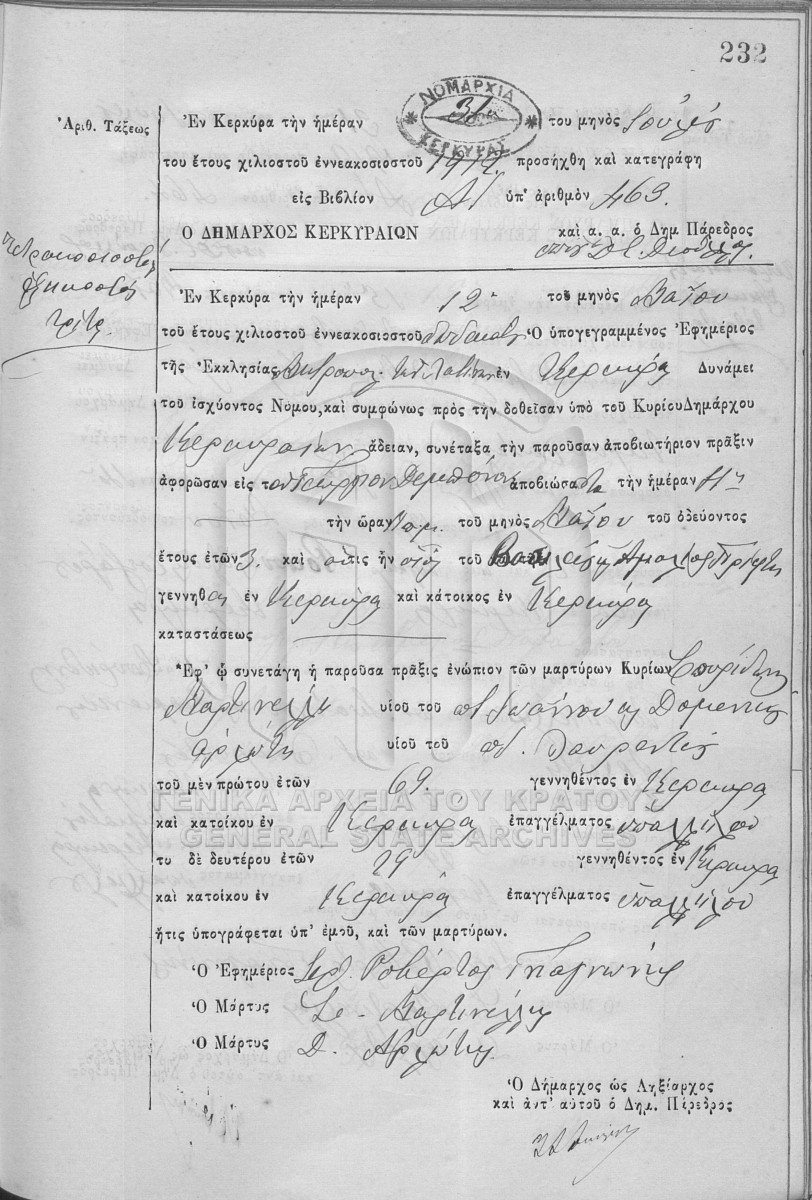 232
ΝΟΜΑΡΧΙΑ
ΚΕΡΚΥΡΑΣ
Ἀριθ. Τάξεως
Ἐν Κερκύρᾳ τὴν ἡμέραν 31 του μηνὸς Ἰουλίου
του ἔτους χιλιοστοῦ ἐννεακοσιοστοῦ 1912 προσήχθη καὶ κατεγράφη
εἰς Βιβλίον ὑπ' ἀριθμὸν 463.
Ο ΔΗΜΑΡΧΟΣ ΚΕΡΚΥΡΑΙΩΝ καὶ α. α. ὁ Δημ. Πάρεδρος
τετρακοσιοστὸς
ἑξηκοστὸς
τρίτη
Ἐν Κερκύρᾳ τὴν ἡμέραν 12 τοῦ μηνὸς Μαΐου
τοῦ ἔτους χιλιοστοῦ ἐννεακοσιοστοῦ δωδεκάτου Ὁ ὑπογεγραμμένος Ἐφημέριος
τῆς Ἐκκλησίας Μητροπολ. τῶν Λατίνων ἐν Κερκύρᾳ Δυνάμει
τοῦ ἰσχύοντος Νόμου, καὶ συμφώνως πρὸς τὴν δοθεῖσαν ὑπὸ τοῦ Κυρίου Δημάρχου
Κερκυραίων ἄδειαν, συνέταξα τὴν παροῦσαν ἀποβιωτήριον πρᾶξιν
ἀφορῶσαν εἰς τὸν Γεώργιον ἀποβιώσαντα τὴν ἡμέραν 11
τὴν ὥραν τοῦ μηνὸς Μαΐου τοῦ ὁδεύοντος
ἔτους ἐτῶν 3. καὶ ὅστις ἦν υἱὸς τοῦ
γεννηθεὶς ἐν Κερκύρᾳ καὶ κάτοικος ἐν Κερκύρᾳ
καταστάσεως
Ἐφ' ᾧ συνετάγη ἡ παροῦσα πρᾶξις ἐνώπιον τῶν μαρτύρων Κυρίων Σπυρίδων
Μαρτινέλλη υἱοῦ τοῦ ποτ. Ἰωάννου και Δομενικ
υἱοῦ τοῦ ποτ. Λαυρεντίου
τοῦ μὲν πρώτου ἐτῶν 69. γεννηθέντος ἐν Κερκύρᾳ
καὶ κατοίκου ἐν Κερκύρᾳ ἐπαγγέλματος ὑπαλλήλου
τυ δὲ δευτέρου ἐτῶν 29 γεννηθέντος ἐν Κερκύρᾳ
καὶ κατοίκου ἐν Κερκύρᾳ ἐπαγγέλματος ὑπαλλήλου
ἥτις ὑπογράφεται ὑπ' ἐμοῦ, καὶ τῶν μαρτύρων.
Ὁ Ἐφημέριος Ροβέρτος
Ὁ Μάρτυς Σπ. Μαρτινέλλης
Ὁ Μάρτυς Δ.
Ὁ Δήμαρχος ὡς Ληξίαρχος
καὶ ἀντ' αὐτοῦ ὁ Δημ. Πάρεδρος
ΓΕΝΙΚΑ ΑΡΧΕΙΑ ΤΟΥ ΚΡΑΤΟΥΣ
GENERAL STATE ARCHIVES